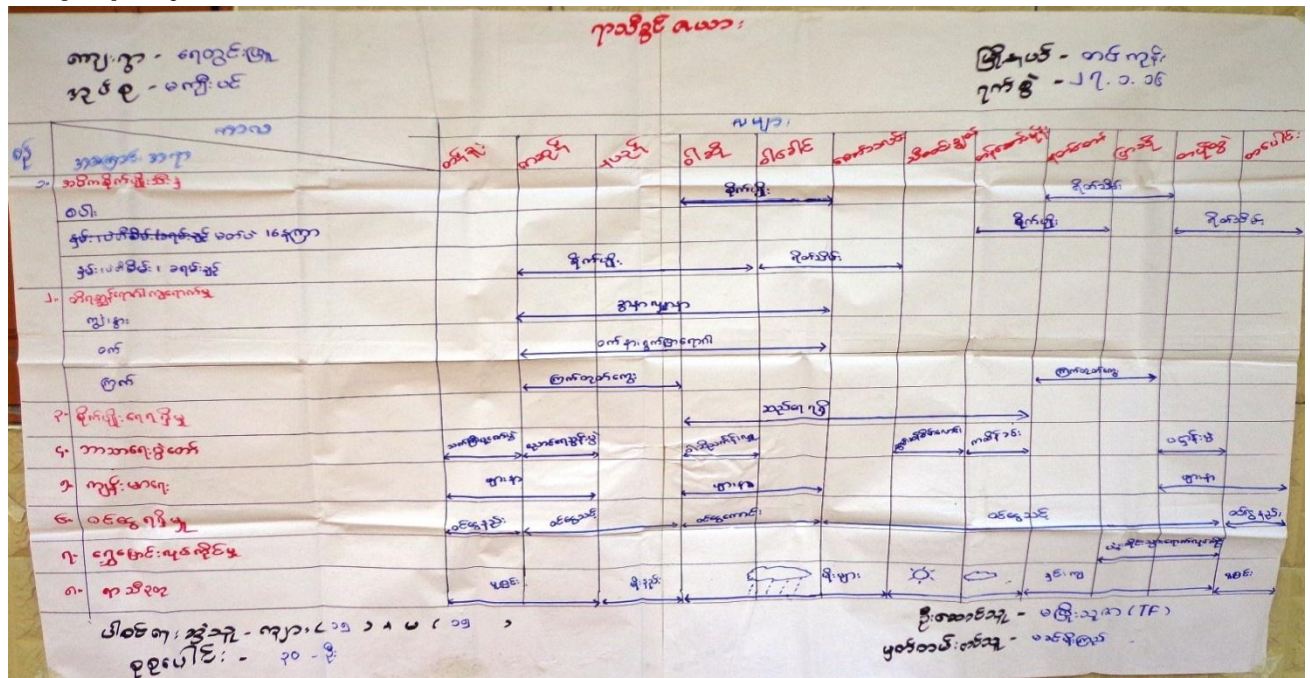 ရာသီခွင် ဇယား
ကျေးရွာ - ရေတွင်းဖြူ
မြို့နယ် - တပ်ကုန်း
အုပ်စု - မကျီးပင်
ရက်စွဲ - ၂၇.၁.၁၆
ကာလ
လများ
စဉ်
အကြောင်းအရာ
တန်ခူး ကဆုန် နယုန် ဝါဆို ဝါခေါင် တော်သလင်း သီတင်းကျွတ် တန်ဆောင်မုန်း နတ်တော် ပြာသို တပို့တွဲ တပေါင်း
၁- အဓိကစိုက်ပျိုးသီးနှံ
စပါး
စိုက်ပျိုး ရိတ်သိမ်း
မတ်ပဲ
စိုက်ပျိုး ရိတ်သိမ်း
နှမ်း၊ ပဲတီစိမ်း၊ ခရမ်းချဉ်
စိုက်ပျိုး ရိတ်သိမ်း
၂- တိရစ္ဆာန်ရောဂါကျရောက်မှု
ကျွဲ၊ နွား
ခွာနာ လျှာနာ
ဝက်
ဝက်နားရွက်ပြာရောဂါ
ကြက်
ကြက်တုပ်ကွေး ကြက်တုပ်ကွေး
၃- စိုက်ပျိုးရေရရှိမှု
ဆည်ရေ ရရှိ
၄- ဘာသာရေးပွဲတော်
ညောင်ရေသွန်းပွဲ ဝါဆိုသင်္ကန်းလှူ ကထိန်ခင်း ပဌာန်းပွဲ
၅- ကျန်းမာရေး
ဖျားနာ ဖျားနာ ဖျားနာ
၆- ဝင်ငွေရရှိမှု
ဝင်ငွေနည်း ဝင်ငွေသင့် ဝင်ငွေကောင်း ဝင်ငွေသင့် ဝင်ငွေနည်း
၇- ရွှေ့ပြောင်းလုပ်ကိုင်မှု
၈- ရာသီဥတု
ပူပြင်း မိုးနည်း မိုးများ နှင်းကျ ပူပြင်း
ပါဝင်ဆွေးနွေးသူ - ကျား (၁၅) + မ (၁၅)
စုစုပေါင်း - ၃၀ - ဦး
ဦးဆောင်သူ - (TF)
မှတ်တမ်းတင်သူ -